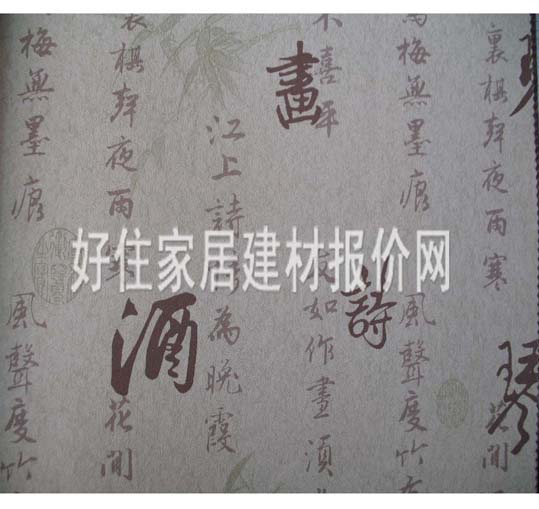 琴
裏棋夜雨寒
花間
梅無墨痕
風聲度竹
詩
不喜平
文如作畫須
畫
江上詩
為晚霞
酒
裏棋夜雨
花間
梅無墨痕
風聲度竹
好住家居建材报价网